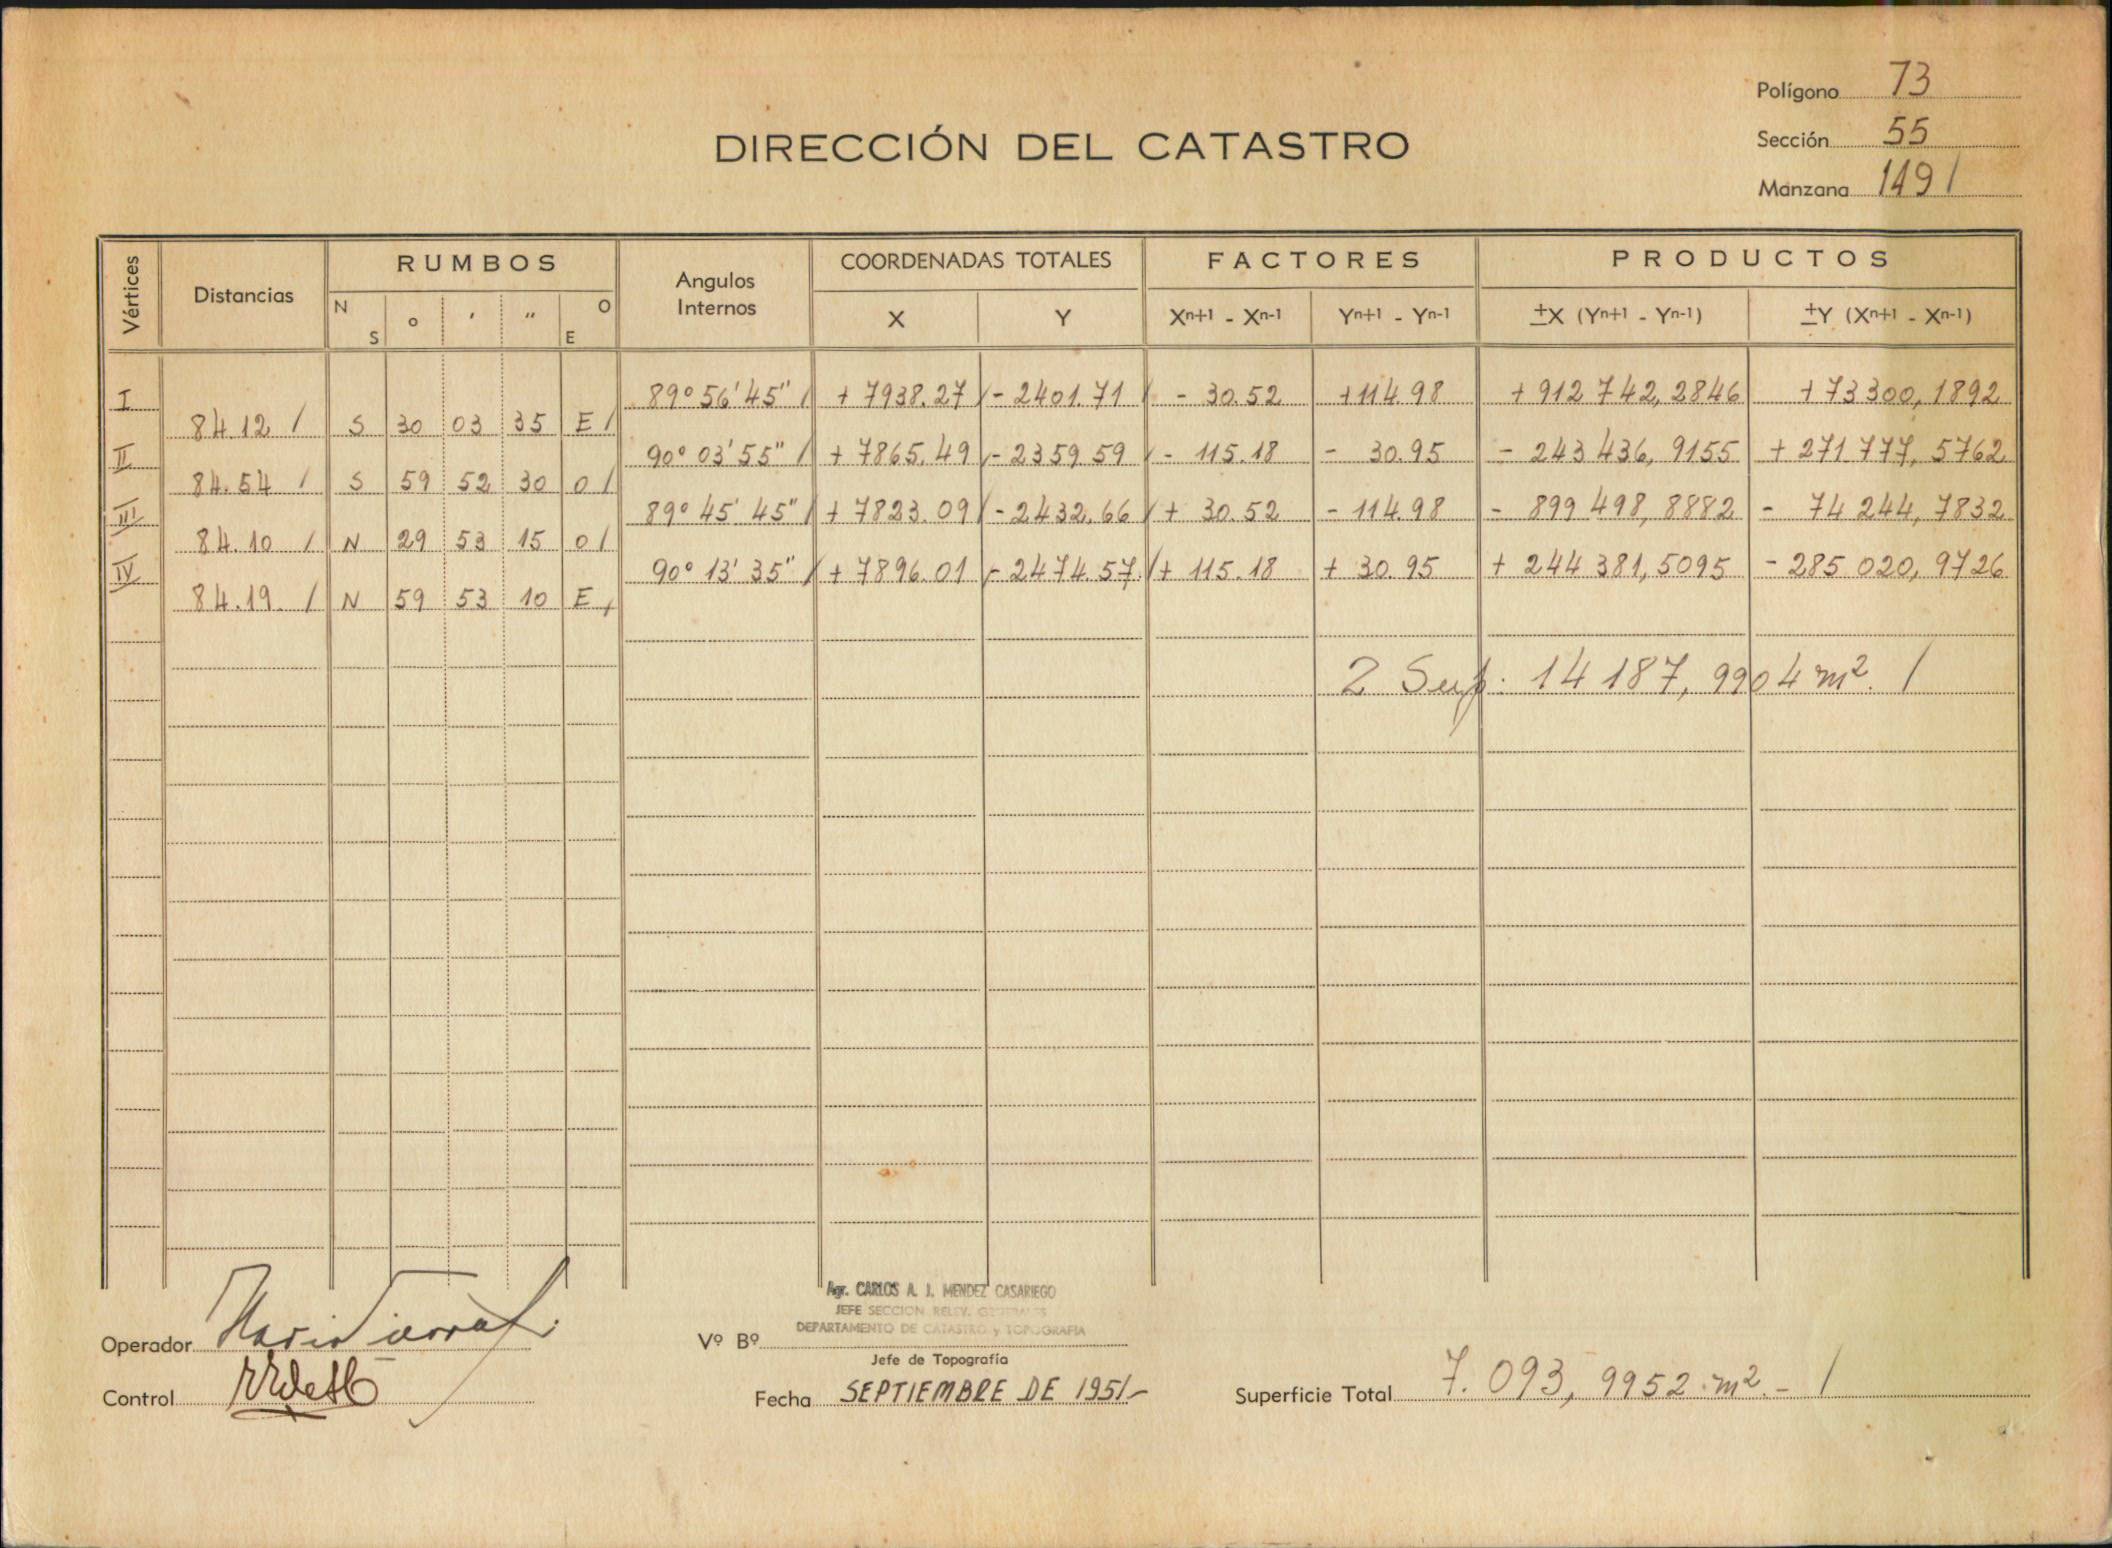 Polígono 73
DIRECCIÓN DEL CATASTRO
Sección 55
Manzana 149 /
Vértices Distancias RUMBOS Angulos Internos COORDENADAS TOTALES FACTORES PRODUCTOS
N S ° ' " O E X Y Xⁿ⁺¹ - Xⁿ⁻¹ Yⁿ⁺¹ - Yⁿ⁻¹ ±X (Yⁿ⁺¹ - Yⁿ⁻¹) ±Y (Xⁿ⁺¹ - Xⁿ⁻¹)
I 89° 56' 45" / + 7938.27 / - 2401.71 / - 30.52 +114.98 + 912 742,2846 + 73300,1892
84.12 / S 30 03 35 E /
II 90° 03' 55" / + 7865.49 / - 2359.59 / - 115.18 - 30.95 - 243 436,9155 + 271 777,5762
84.54 / S 59 52 30 O /
III 89° 45' 45" / + 7823.09 / - 2432.66 / + 30.52 - 114.98 - 899 498,8882 - 74 244,7832
84.10 / N 29 53 15 O /
IV 90° 13' 35" / + 7896.01 / - 2474.57 / + 115.18 + 30.95 + 244 381,5095 - 285 020,9726
84.19 / N 59 53 10 E /
2 Sup. 14 187,9904 m². /
Agr. CARLOS A. J. MENDEZ CASARIEGO
JEFE SECCION RELEV. GENERALES
DEPARTAMENTO DE CATASTRO y TOPOGRAFIA
Operador Vº Bº
Jefe de Topografía
Control Fecha SEPTIEMBRE DE 1951.- Superficie Total 7.093,9952 m².- /